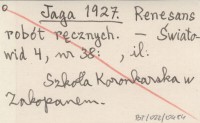 Jaga 1927. Renesans
robót ręcznych. — Świato-
wid 4, nr 38: , il:
Szkoła Koronkarska w
Zakopanem.